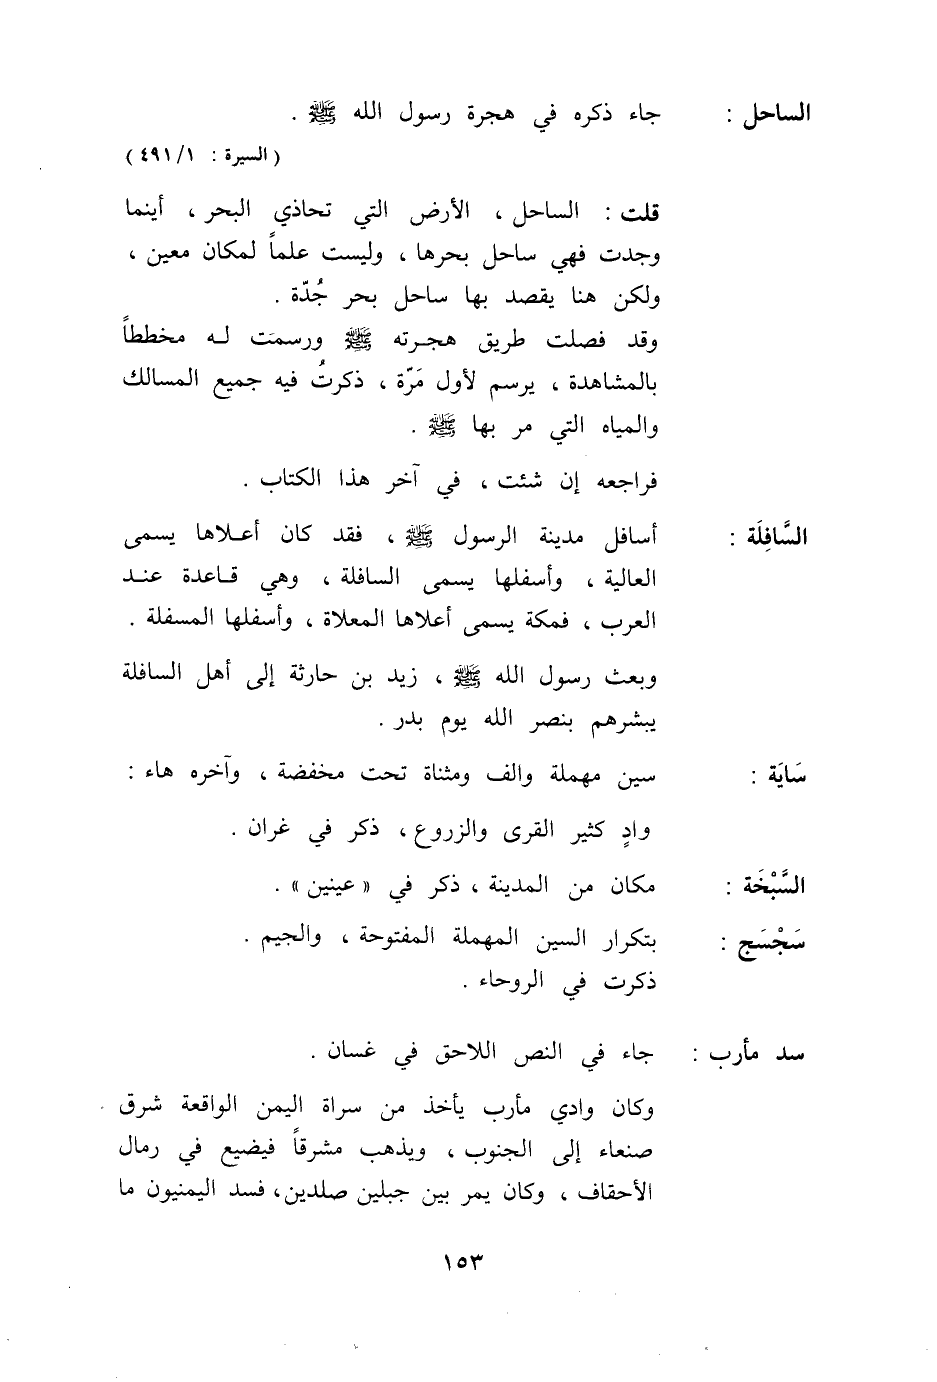 الساحل : جاء ذكره في هجرة رسول الله ﷺ .
( السيرة : ٤٩١/١ )
قلت : الساحل ، الأرض التي تحاذي البحر ، أينما
وجدت فهي ساحل بحرها ، وليست علماً لمكان معين ،
ولكن هنا يقصد بها ساحل بحر جُدّة .
وقد فصلت طريق هجرته ﷺ ورسمت له مخططاً
بالمشاهدة ، يرسم لأول مَرّة ، ذكرتُ فيه جميع المسالك
والمياه التي مر بها ﷺ .
فراجعه إن شئت ، في آخر هذا الكتاب .
السَّافِلَة : أسافل مدينة الرسول ﷺ ، فقد كان أعلاها يسمى
العالية ، وأسفلها يسمى السافلة ، وهي قاعدة عند
العرب ، فمكة يسمى أعلاها المعلاة ، وأسفلها المسفلة .
وبعث رسول الله ﷺ ، زيد بن حارثة إلى أهل السافلة
يبشرهم بنصر الله يوم بدر .
سَايَة : سين مهملة والف ومثناة تحت مخفضة ، وآخره هاء :
وادٍ كثير القرى والزروع ، ذكر في غران .
السَّبْخَة : مكان من المدينة ، ذكر في « عينين » .
سَجْسَج : بتكرار السين المهملة المفتوحة ، والجيم .
ذكرت في الروحاء .
سد مأرب : جاء في النص اللاحق في غسان .
وكان وادي مأرب يأخذ من سراة اليمن الواقعة شرق
صنعاء إلى الجنوب ، ويذهب مشرقاً فيضيع في رمال
الأحقاف ، وكان يمر بين جبلين صلدين، فسد اليمنيون ما
١٥٣